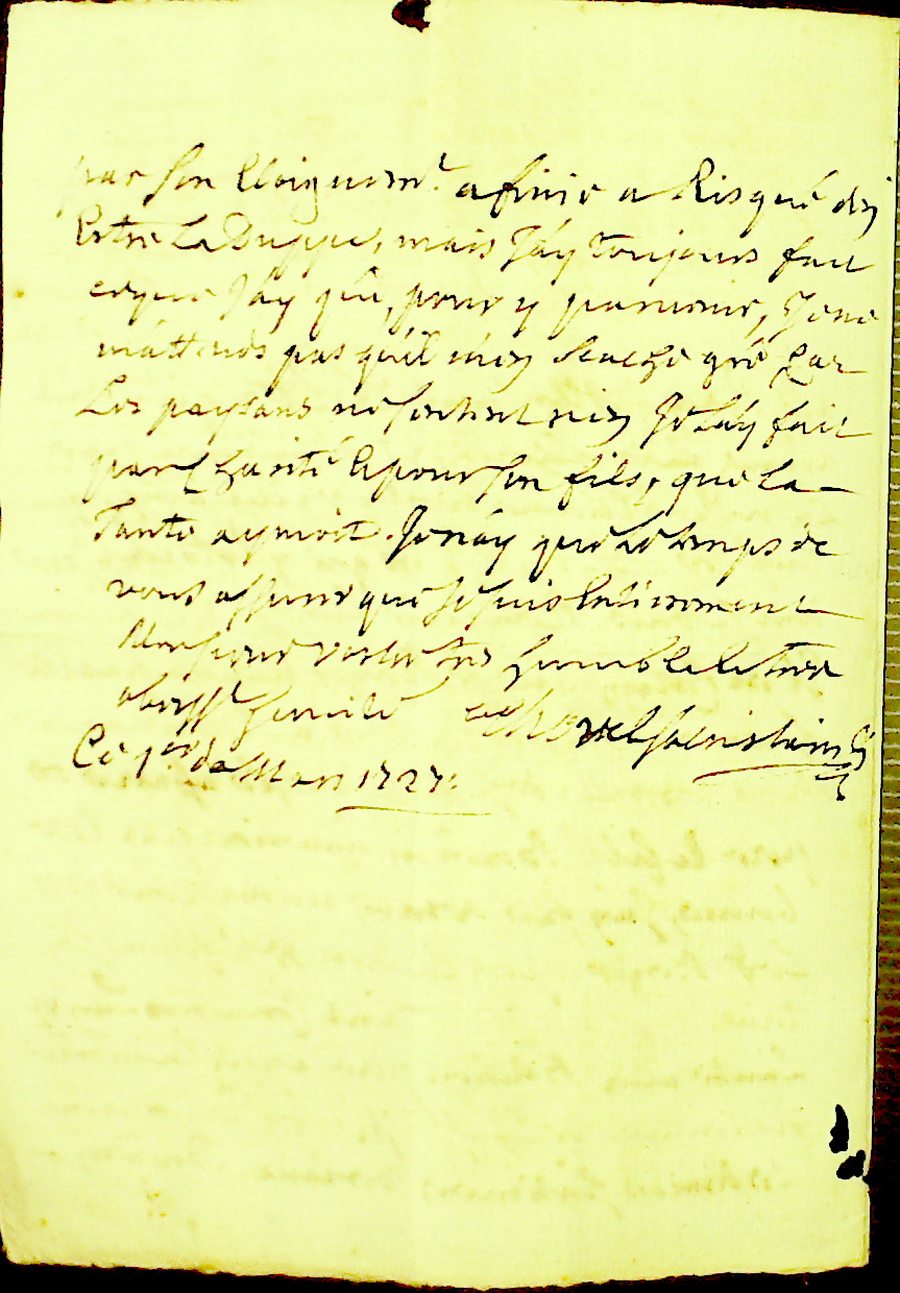 par son Eloignemt. a finir a Risque d'en
Estre La Duppe, mais J'ay toujours fait
ceque J'ay pû, pour y parvenir, Je ne
m'attends pas qu'il m'en scache gré Car
Les paysans ne sentent rien Je L'ay fait
par Charité Et pour son fils, que La
Tante aymoit. Je n'ay que Le temps de
vous assurer que Je suis Entierement
Monsieur vostre tres humble Et tres
obeisst. servite
Ce 1er de Mars 1727.